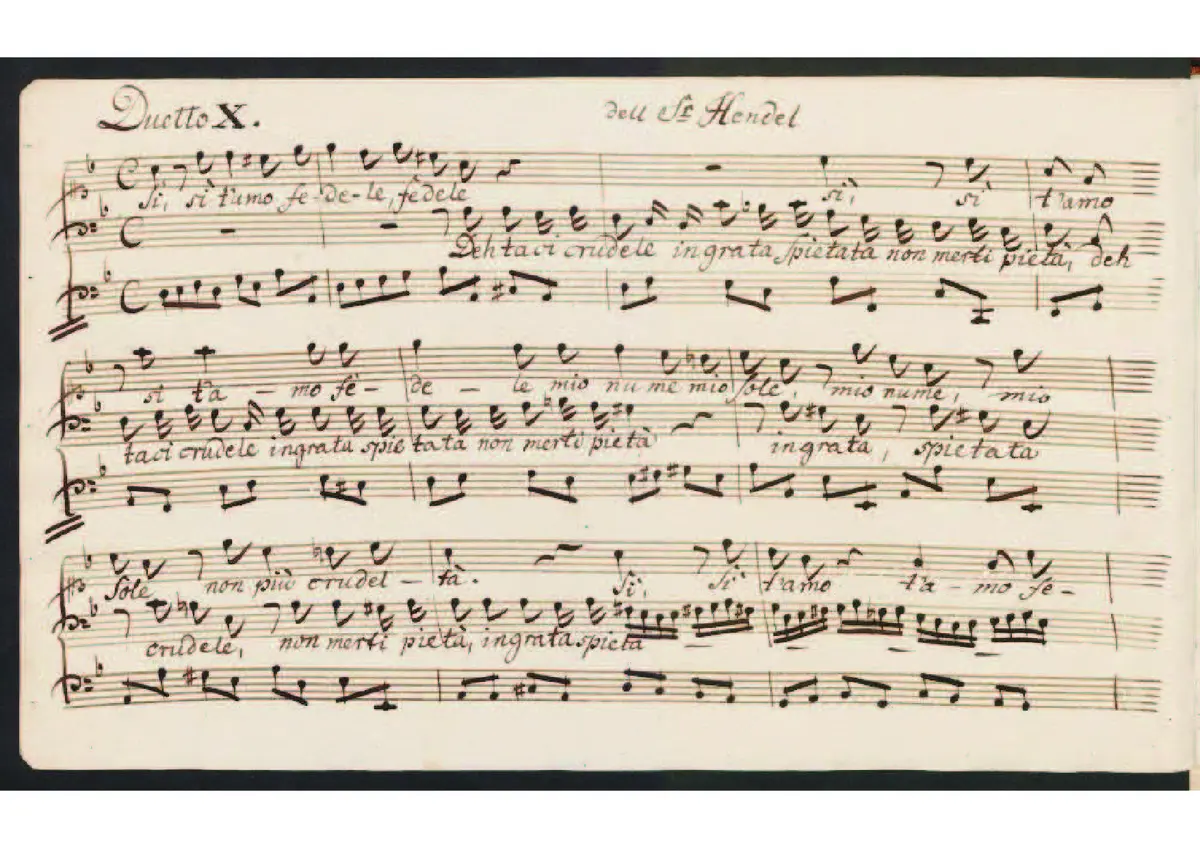 Duetto X. dell Sr. Hendel
Si, si t'amo fe-de-le, fedele si, si t'amo
Deh taci crudele ingrata spietata non merti pietà, deh
si t'a-mo fe-de-le mio nume mio sole, mio nume, mio
taci crudele ingrata spietata non merti pietà ingrata, spietata
sole non più crudel-tà. Si, si t'amo t'a-mo fe-
crudele, non merti pietà, ingrata spieta